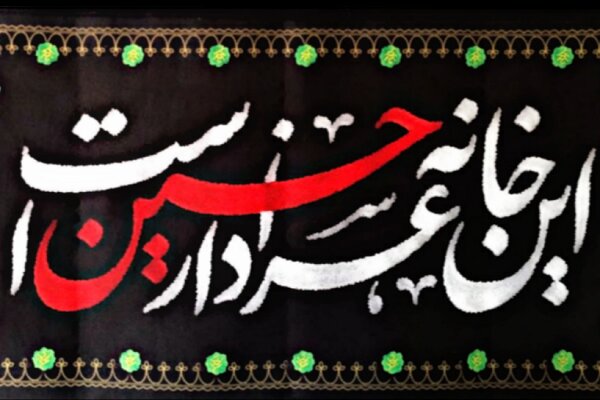 این خانه عزادار حسین است